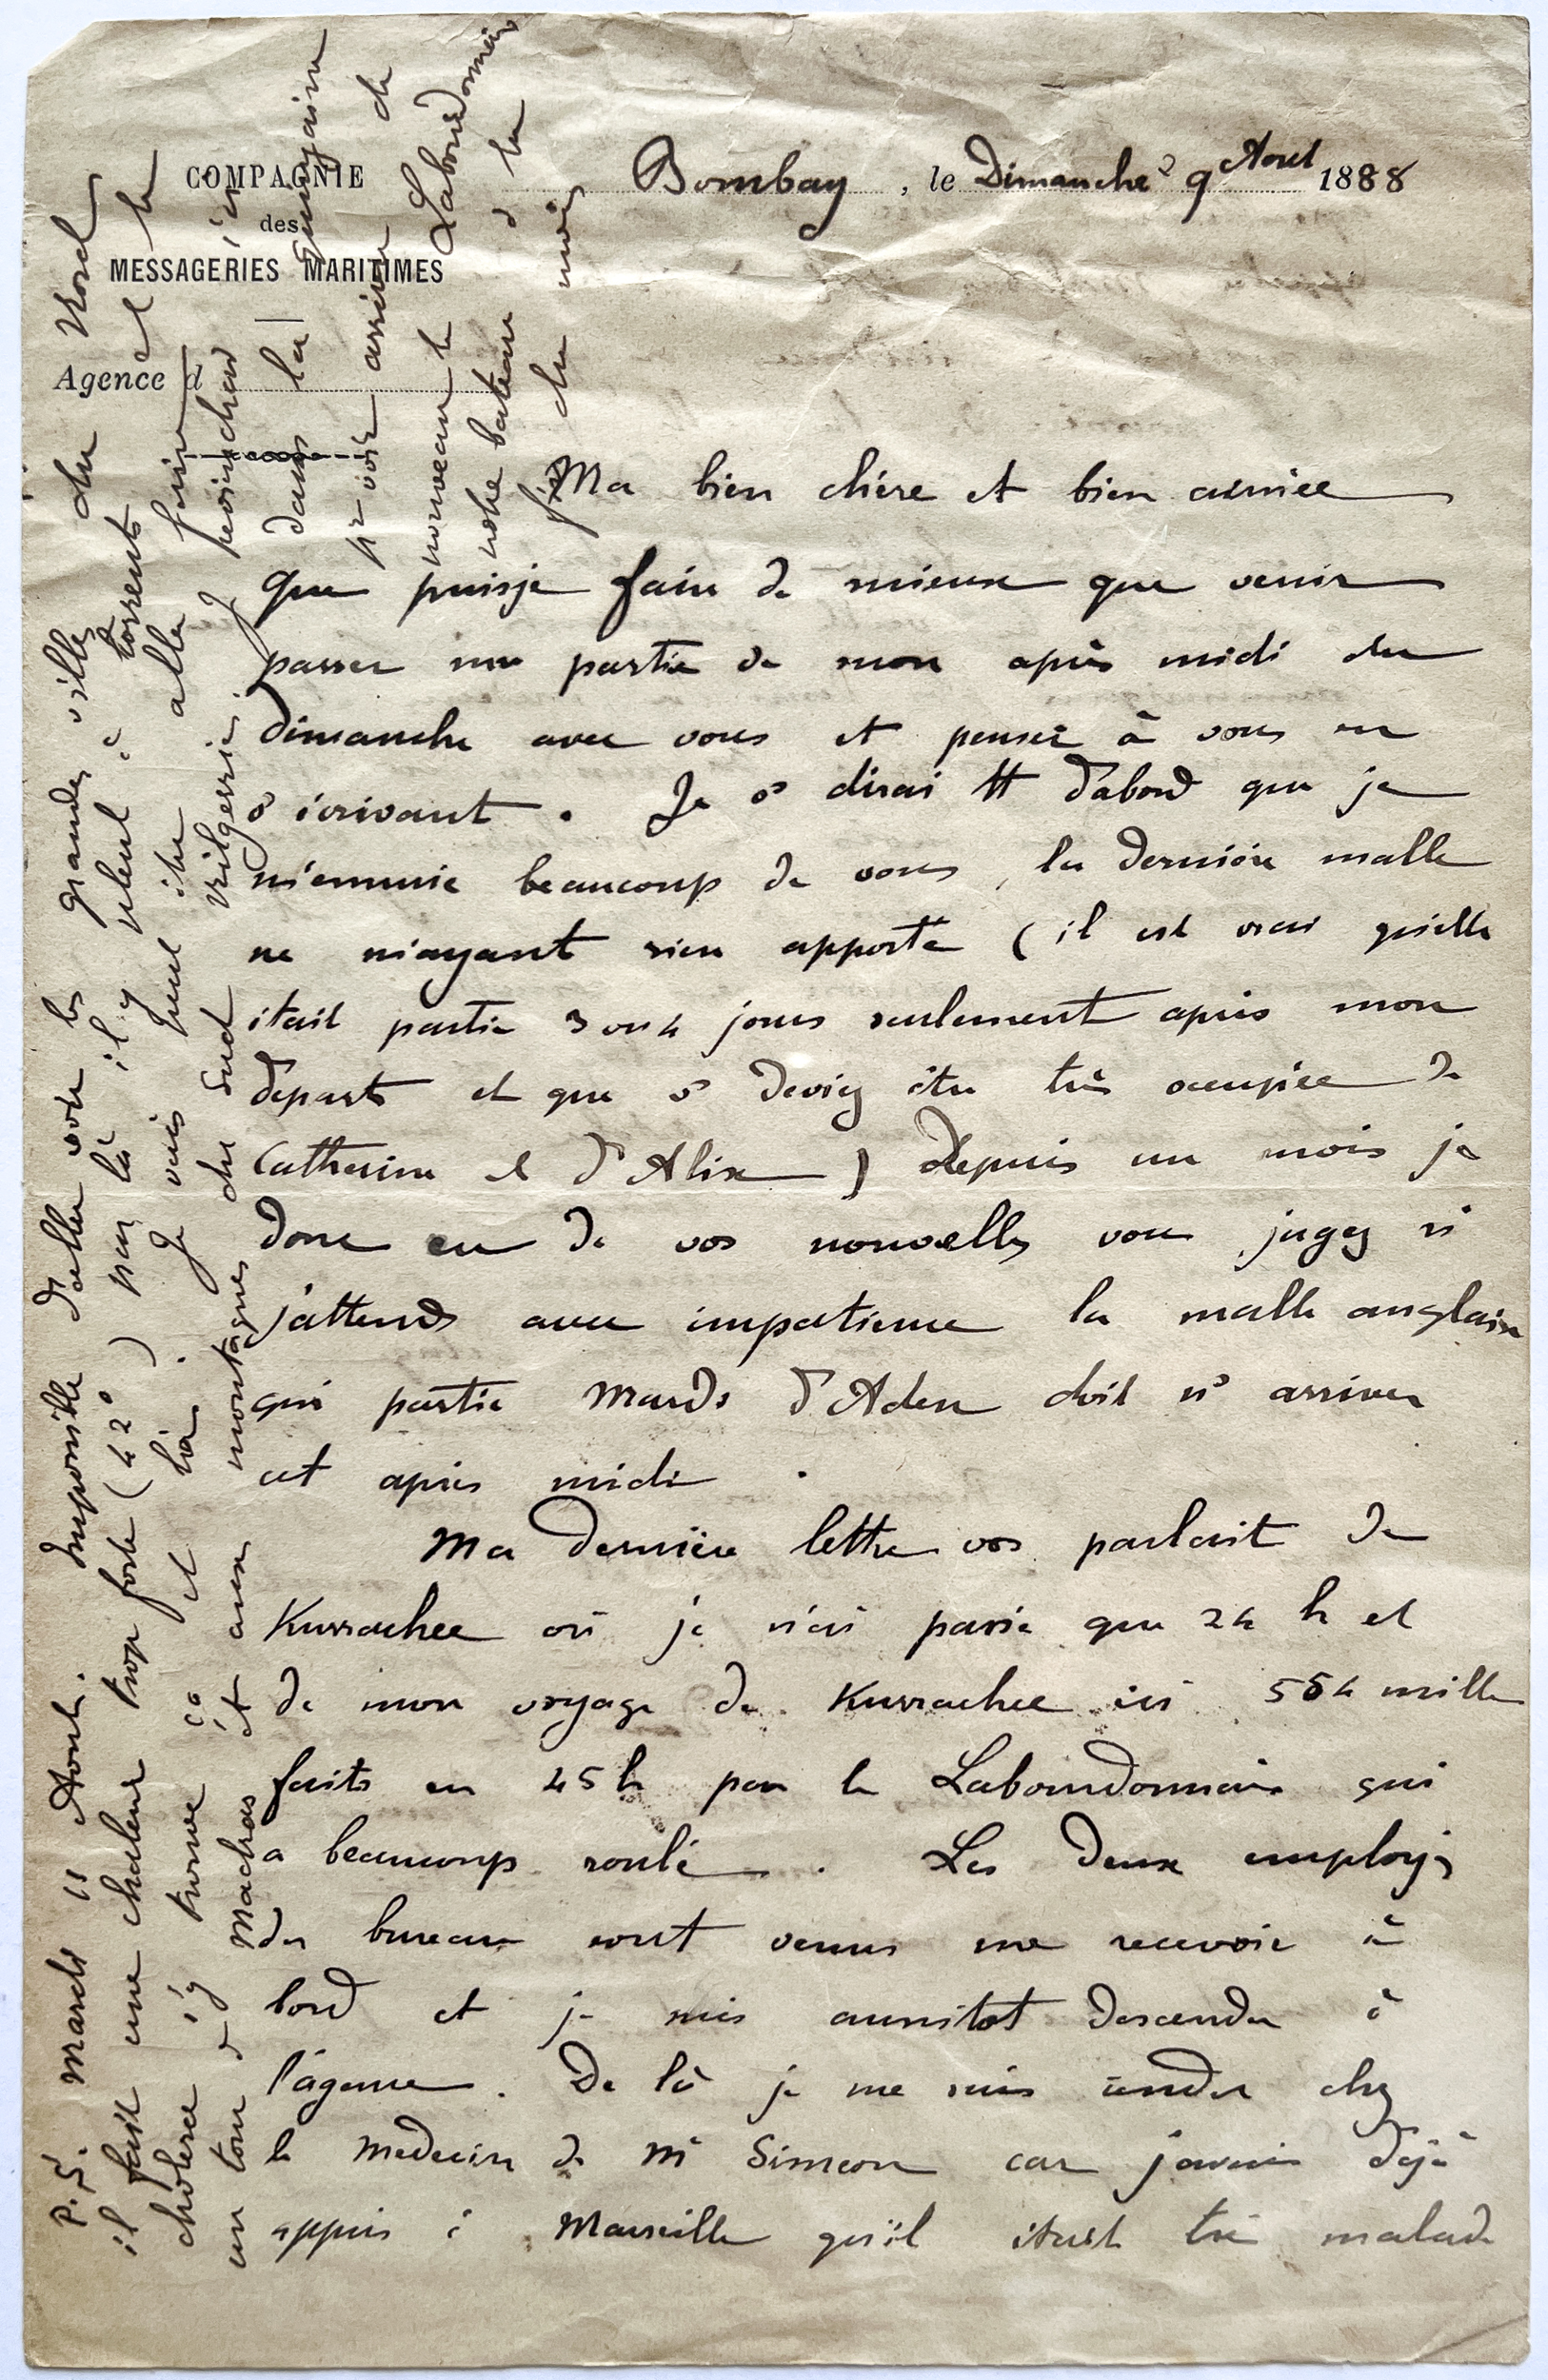 COMPAGNIE
des
MESSAGERIES MARITIMES
Agence d
Bombay, le Dimanche 9 Aout 1888
Ma bien chère et bien aimée
que puisje faire de mieux que venir
passer une partie de mon après midi du
dimanche avec vous et penser à vous en
v^s écrivant. Je v^s dirai tt d'abord que je
m'ennuie beaucoup de vous, la dernière malle
ne m'ayant rien apporté (il est vrai qu'elle
était partie 3 ou 4 jours seulement après mon
départ et que v^s deviez être très occupée de
Catherine et d'Alix) Depuis un mois je
donc eu de vos nouvelles vous jugez si
j'attends avec impatience la malle anglaise
qui partie Mardi d'Aden doit n^s arriver
cet après midi.
Ma dernière lettre vos parlait de
Kurrachee où je n'ai passé que 24 h et
de mon voyage de Kurrachee ici 554 milles
faits en 45 h par le Labourdonnais qui
a beaucoup roulé. Les deux employés
du bureau sont venus me recevoir à
bord et je suis aussitot descendu à
l'agence. De là je me suis rendu chez
le medecin de M^r Simeon car j'avais déjà
appris à Marseille qu'il était très malade
P.S. Mardi 11 Aout. Impossible d'aller voir les grandes villes du Nord
il fait une chaleur trop forte (42°) par là il y pleut à torrents et le
choléra s'y trouve çà et là. Je vais peut être aller faire
un tour à Madras et aux montagnes du sud Nilgerries. Je
dans la quinzaine
p^r voir arriver de
nouveau le Labourdonnais
notre bateau à la
fin du mois